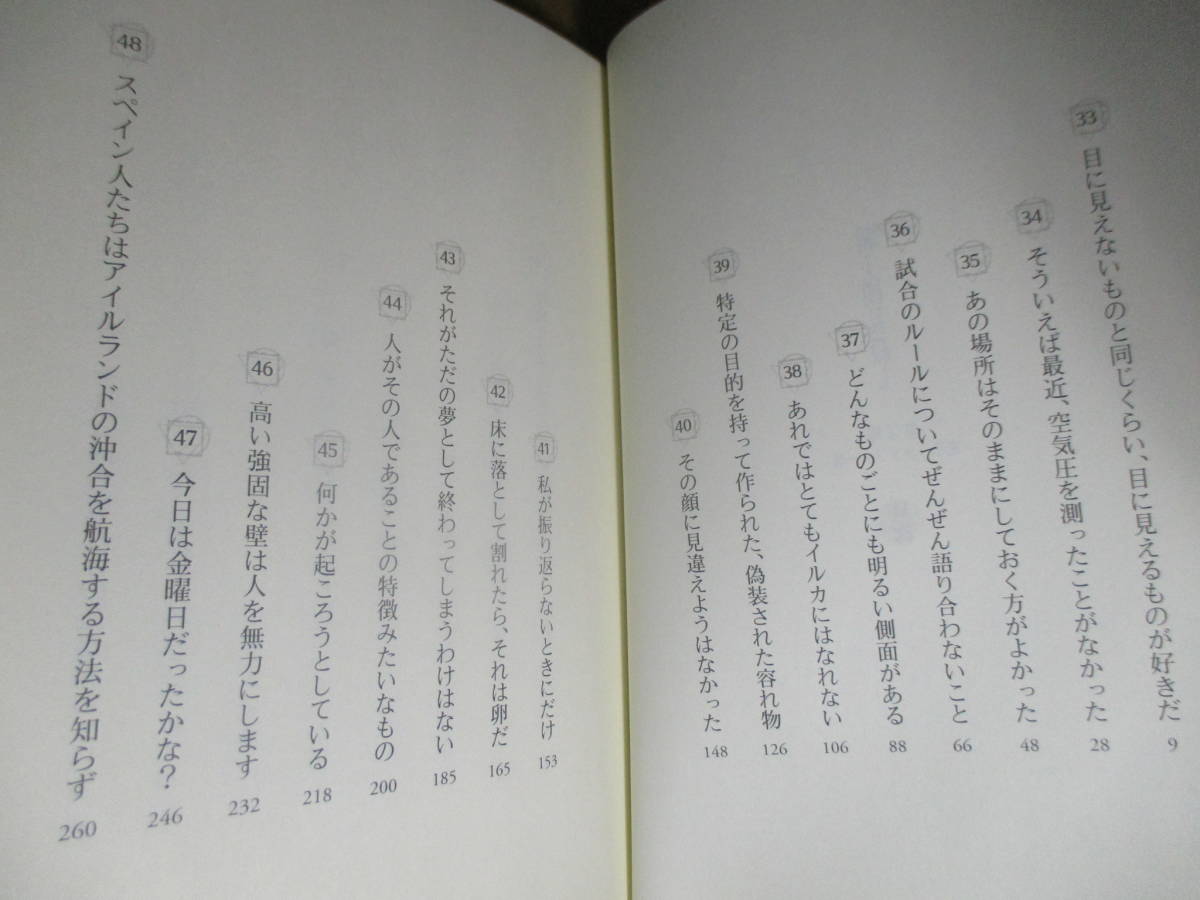 33 目に見えないものと同じくらい、目に見えるものが好きだ 9
34 そういえば最近、空気圧を測ったことがなかった 28
35 あの場所はそのままにしておく方がよかった 48
36 試合のルールについてぜんぜん語り合わないこと 66
37 どんなものごとにも明るい側面がある 88
38 あれではとてもイルカにはなれない 106
39 特定の目的を持って作られた、偽装された容れ物 126
40 その顔に見違えようはなかった 148
41 私が振り返らないときにだけ 153
42 床に落として割れたら、それは卵だ 165
43 それがただの夢として終わってしまうわけはない 185
44 人がその人であることの特徴みたいなもの 200
45 何かが起ころうとしている 218
46 高い強固な壁は人を無力にします 232
47 今日は金曜日だったかな? 246
48 スペイン人たちはアイルランドの沖合を航海する方法を知らず 260